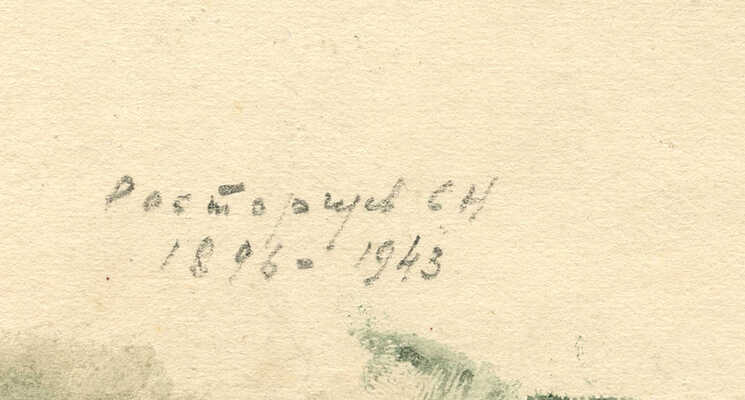 Расторгуев С Н
1896-1943